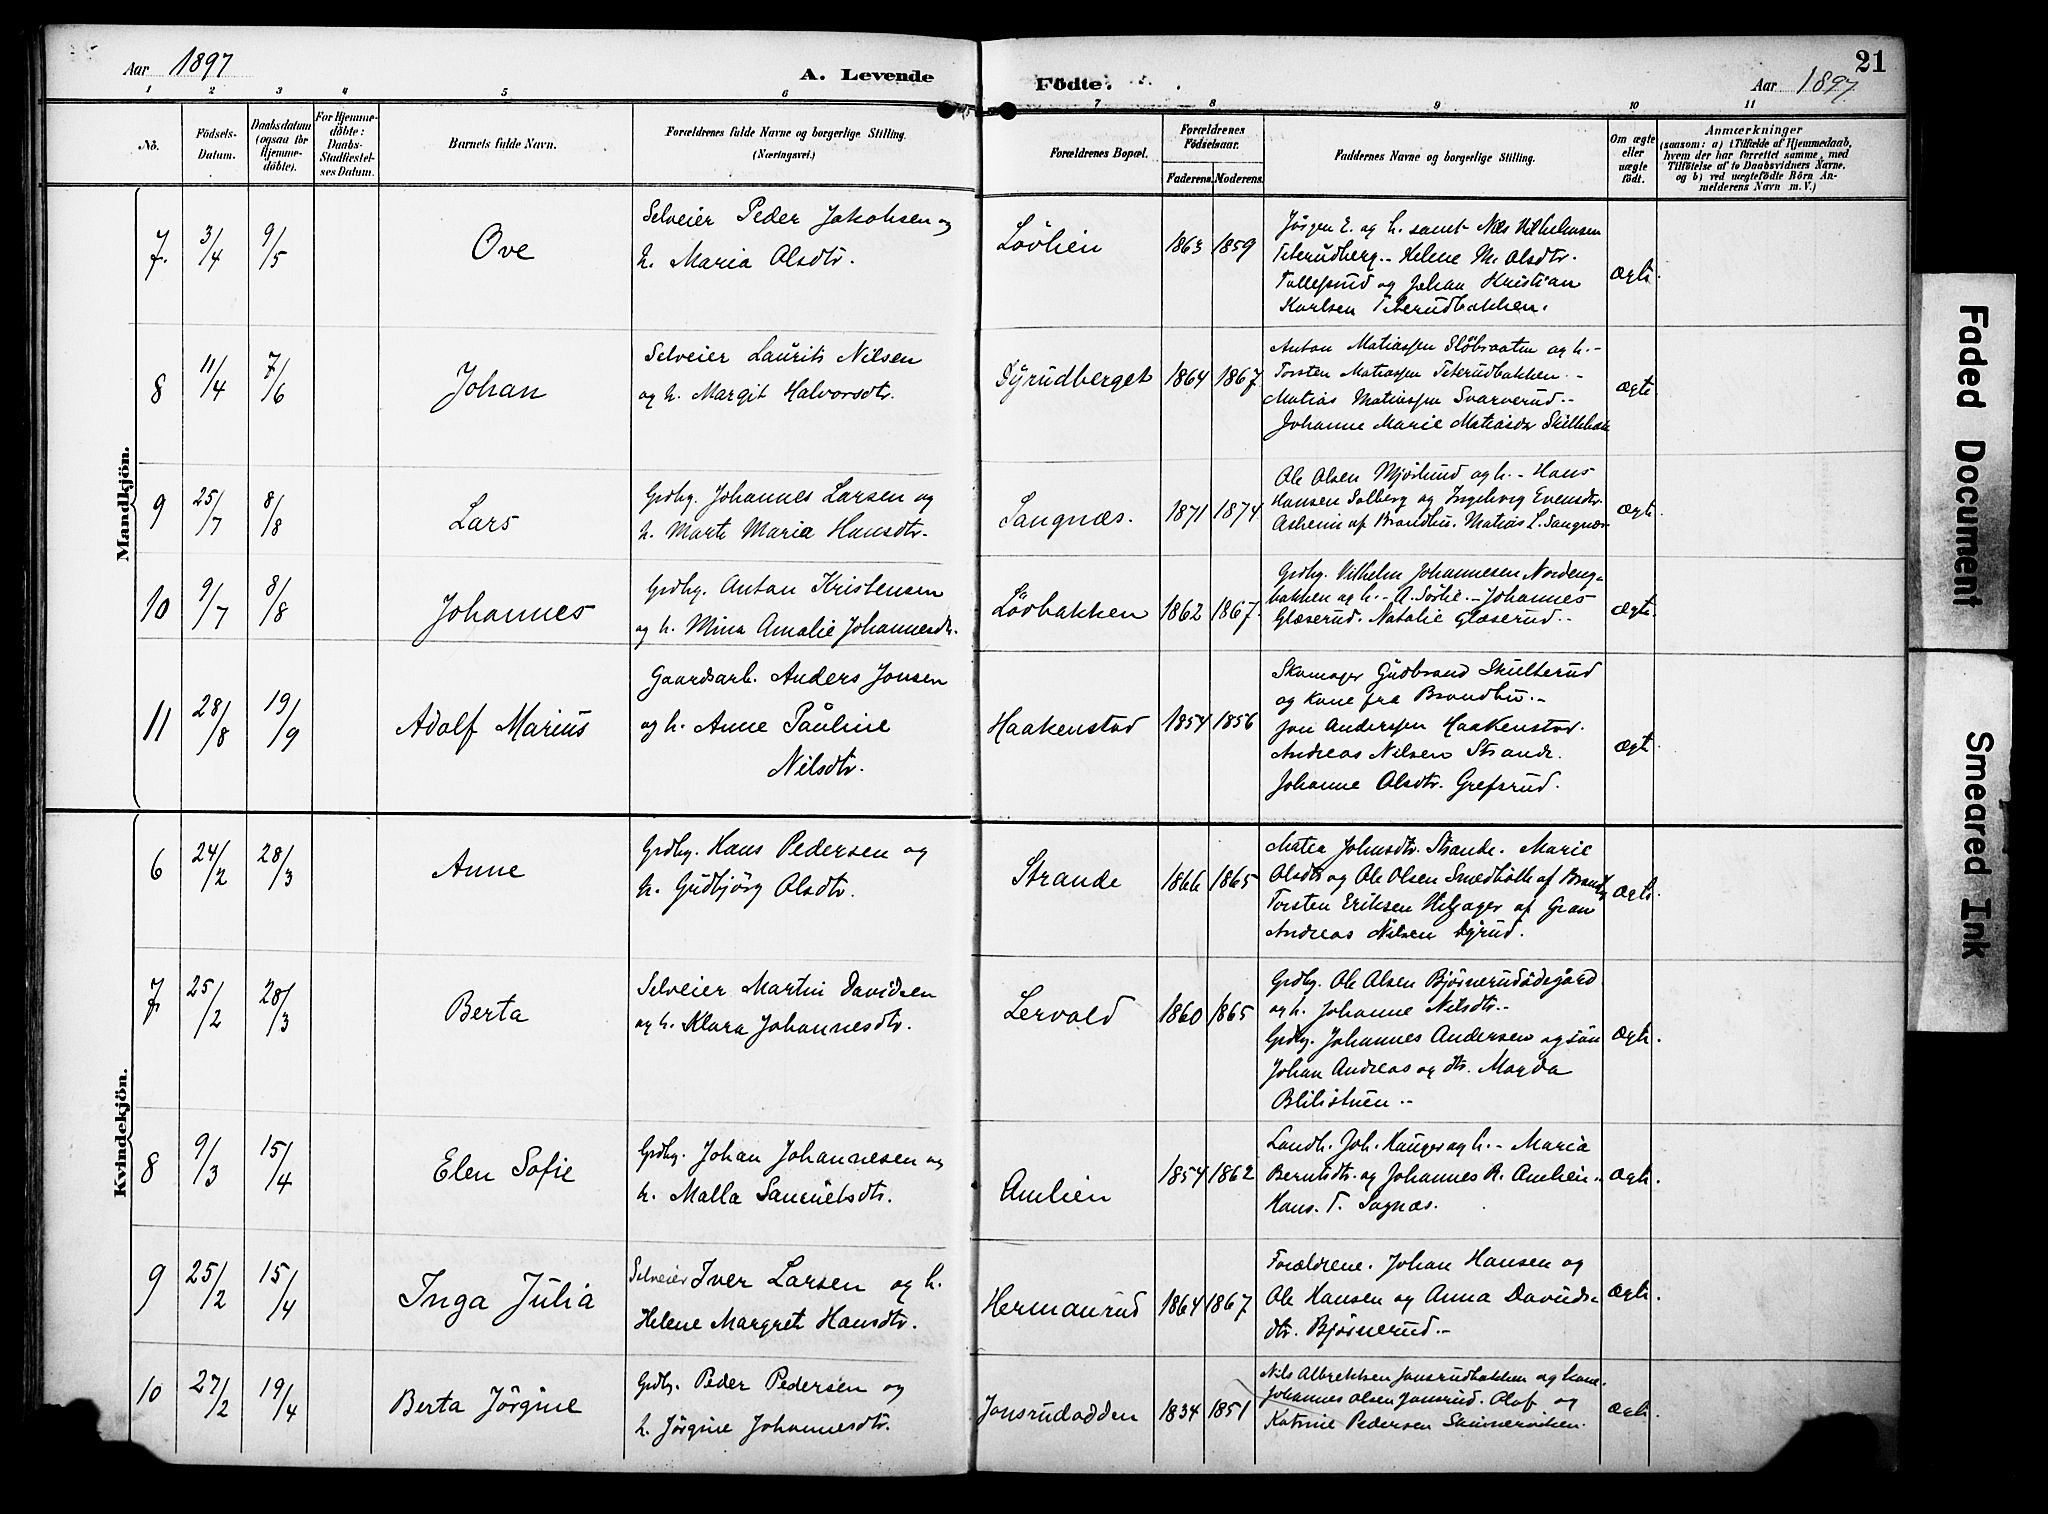 Aar 1897
A. Levende
Födte.
Aar 1897.
21
1 2 3 4 5 6 7 8 9 10 11
No.
Födsels-
Datum.
Daabsdatum
(ogsaa for
Hjemme-
döbte).
For Hjemme-
döbte:
Daabs-
Stadfæstel-
ses Datum.
Barnets fulde Navn.
Forældrenes fulde Navne og borgerlige Stilling.
(Næringsvei.)
Forældrenes Bopæl.
Forældrenes
Födselsaar.
Faderens. Moderens.
Faddernes Navne og borgerlige Stilling.
Om ægte
eller
uægte
födt.
Anmærkninger
(saasom: a) i Tilfælde af Hjemmedaab,
hvem der har forrettet samme, med
Tilföielse af to Daabsvidners Navne.
og b) ved uægtefödte Börn An-
melderens Navn m. V.)
Mandkjön.
7. 3/4 9/5 Ove
Selveier Peder Jakobsen og
h. Maria Olsdtr.
Lövlien 1863 1859
Jörgen E. og h. samt Nils Vilhelmsen
Teterudberg.- Helene M. Olsdtr.
Tollefsrud og Johan Kristian
Karlsen Teterudbakken.
ægte.
8 11/4 7/6 Johan
Selveier Laurits Nilsen
og h. Margit Halvorsdtr.
Dyrudberget 1864 1867
Anton Matiassen Slöbraaten og h.-
Torsten Matiassen Teterudbakken.-
Matias Matiassen Svarverud.-
Johanne Marie Matiasdr
ægte.
9 25/7 8/8 Lars
Grdbg. Johannes Larsen og
h. Marte Maria Hansdtr.
Sangnæs. 1871 1874
Ole Olsen Mjörlund og h.- Hans
Hansen Solberg og Ingeborg Evensdtr.
af Brandbu. Matias L. Sangnæs
ægte.
10 9/7 8/8 Johannes
Grdbg. Anton Kristensen
og h. Mina Amalie Johannesdtr.
Lövbakken 1862 1867.
Grdbg. Vilhelm Johannesen Nordeng-
bakken og h.- A. Sörlie.- Johannes
Glæserud. Natalie Glæserud.-
ægte.
11 28/8 19/9 Adolf Marius
Gaardsarb. Anders Jonsen
og h. Anne Pauline
Nilsdtr.
Haakenstad 1854 1856
Skomager Gudbrand Skulterud
og kone fra Brandbu.-
Jon Anderssen Haakenstad.
Andreas Nilsen Strande.
Johanne Olsdtr. Grefsrud.
ægte.
Kvindekjön.
6 24/2 28/3 Anne
Grdbg. Hans Pedersen og
h. Gudbjörg Olsdtr.
Strande 1866 1865
Matea Johnsdtr. Strande. Marie
Olsdtr og Ole Olsen Smedhölle af Brandb.
Torsten Eriksen Helgager af Gran
Andreas Nilsen Dyrud.
ægte.
7. 25/2 28/3 Berta
Selveier Martin Davidsen
og h. Klara Johannesdtr.
Lervold 1860 1865
Grdbg. Ole Olsen Bjørnerudödegård
og h. Johanne Nilsdtr.-
Grdbg. Johannes Andersen og sön
Johan Andreas og dtr. Magda
Blilistuen.-
ægte.
8 9/3 15/4 Elen Sofie
Grdbg. Johan Johannesen og
h. Malla Samuelsdtr.
Amlien 1854 1862
Landh. Joh. Hauger og h.- Maria
Berntsdtr. og Johannes R. Amlien.
Hans. T. Sagnæs.
ægte.
9 25/2 15/4 Inga Julia
Selveier Iver Larsen og h.
Helene Margrete Hansdtr.
Hermanrud 1864 1867
Forældrene. Johan Hansen og
Ole Hansen og Anna Davids-
dtr. Bjørnerud.-
ægte.
10 27/2 19/4 Berta Jörgine
Grdbg. Peder Pedersen og
h. Jörgine Johannesdtr.
Jonsrudodden 1834 1851
Nils Albrektsen Jonsrudbakken og kone.
Johannes Olsen Jonsrud. Olof og
Katrine Pedersen Skinnerviken.
ægte.
Faded Document
Smeared Ink